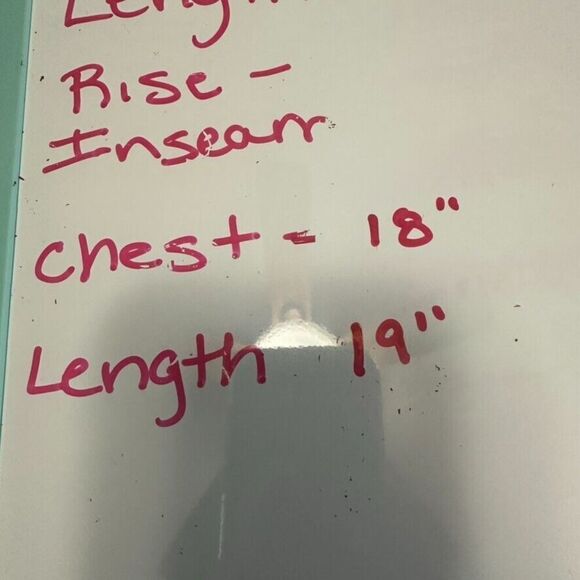 Length
Rise -
Inseam
Chest - 18"
Length 19"